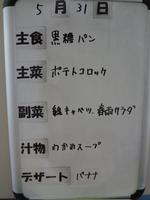 5月31日
主食 黒糖パン
主菜 ポテトコロッケ
副菜 千キャベツ、春雨サラダ
汁物 わかめスープ
デザート バナナ